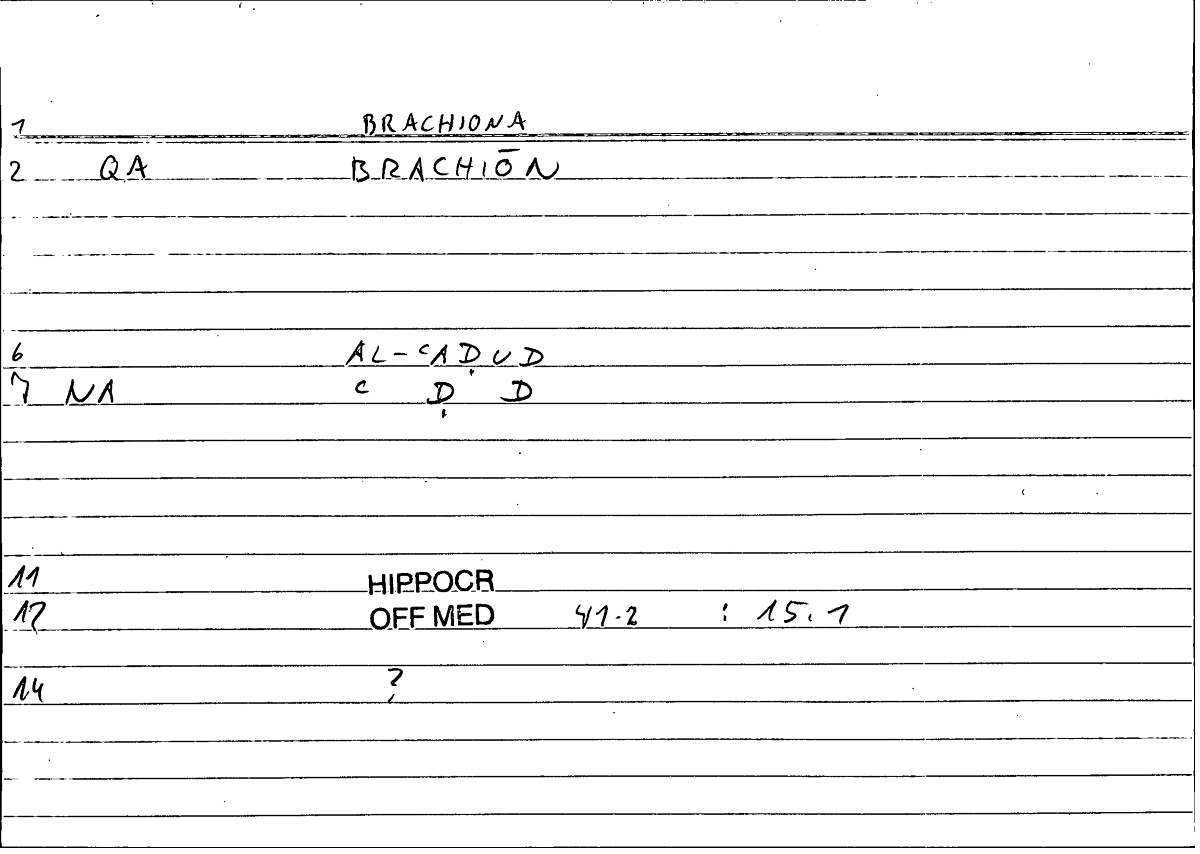 1 BRACHIONA
2 QA BRACHIŌN
6 AL-ʿAḌUD
7 NA ʿ Ḍ D
11 HIPPOCR
12 OFF MED 41.2 : 15.1
14 ?